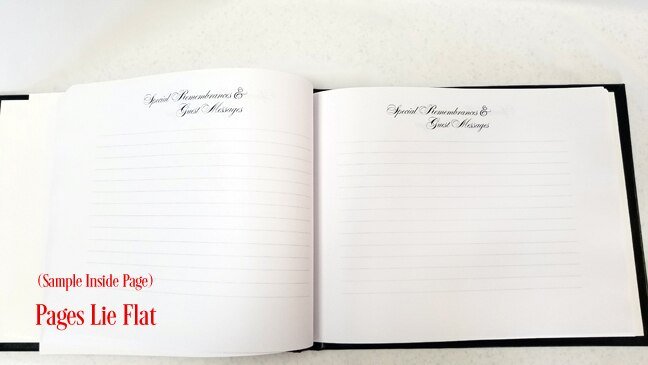 Special Remembrances &
Guest Messages
Special Remembrances &
Guest Messages
(Sample Inside Page)
Pages Lie Flat